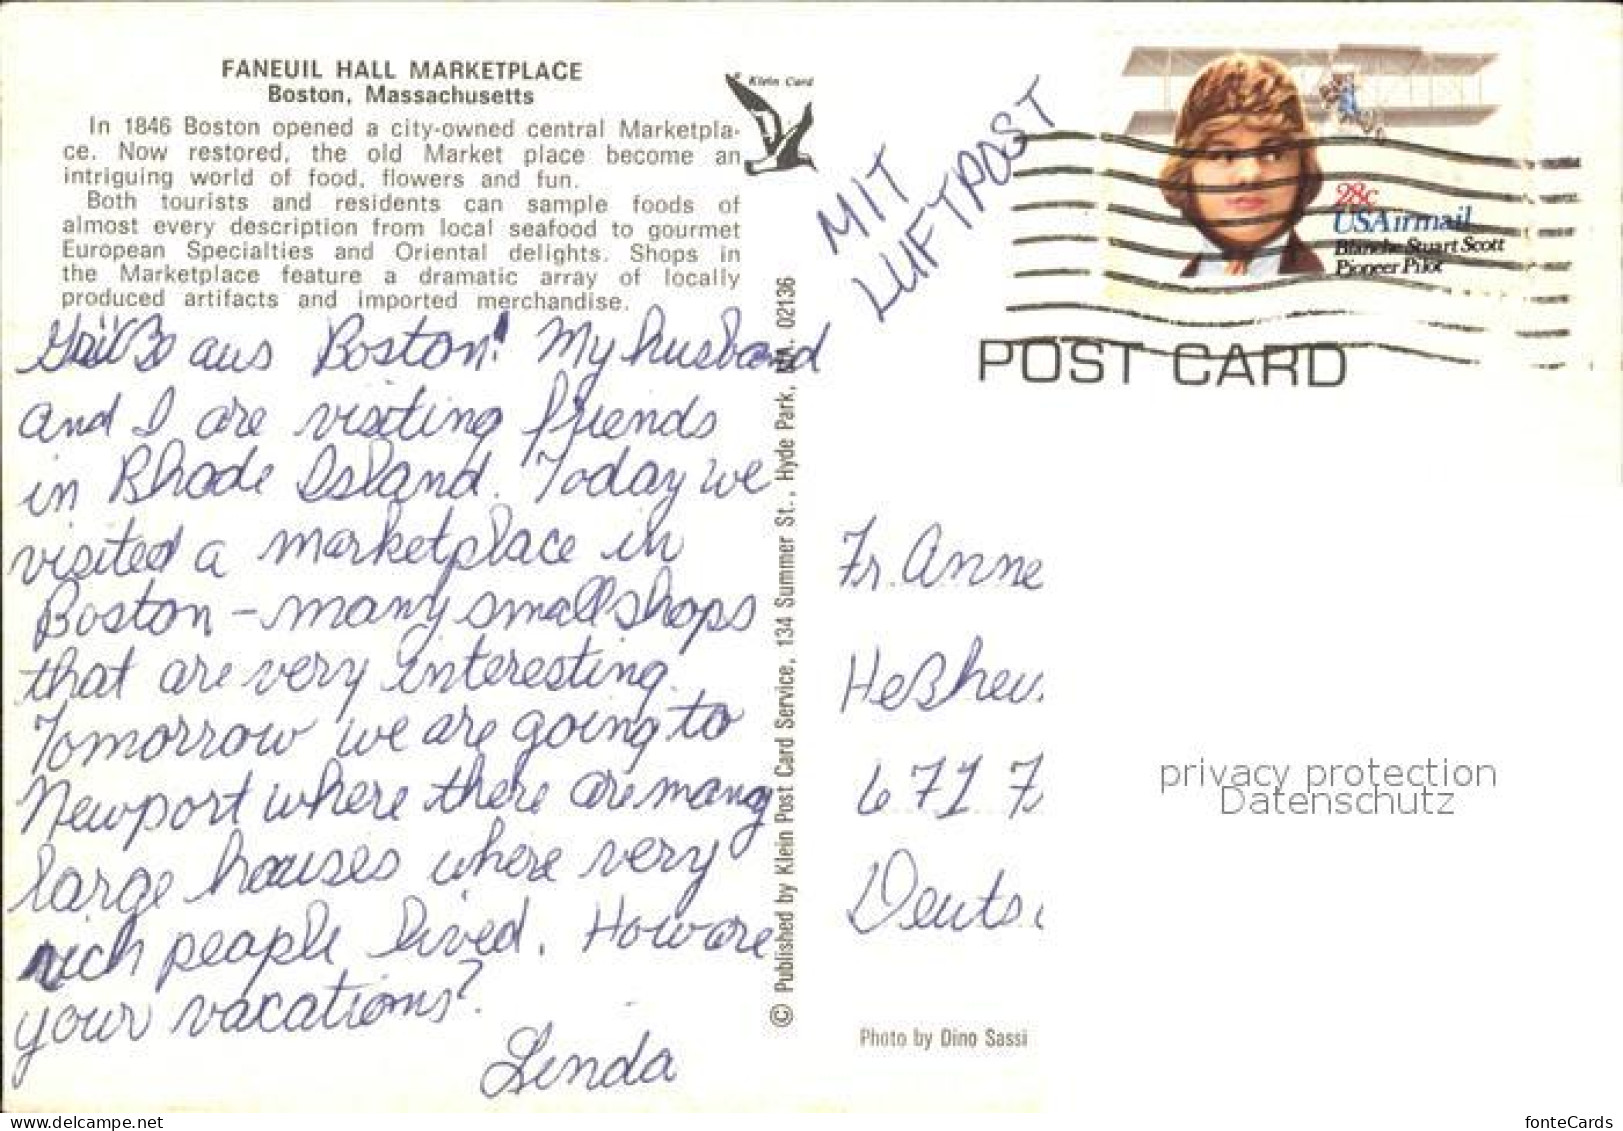 FANEUIL HALL MARKETPLACE
Boston, Massachusetts
In 1846 Boston opened a city-owned central Marketpla-
ce. Now restored, the old Market place become an
intriguing world of food, flowers and fun.
Both tourists and residents can sample foods of
almost every description from local seafood to gourmet
European Specialties and Oriental delights. Shops in
the Marketplace feature a dramatic array of locally
produced artifacts and imported merchandise.
Klein Card
aus Boston! My husband
and I are visiting friends
in Rhode Island. Today we
visited a marketplace in
Boston – many small shops
that are very interesting.
Tomorrow we are going to
Newport where there are many
large houses where very
rich people lived. How are
your vacations?
Linda
© Published by Klein Post Card Service, 134 Summer St., Hyde Park, MA. 02136
MIT
LUFTPOST
28c
USAirmail
Blanche Stuart Scott
Pioneer Pilot
POST CARD
Fr. Anne
Heßheu
671 Fr
Deutsc
privacy protection
Datenschutz
Photo by Dino Sassi
fonteCards
www.delcampe.net